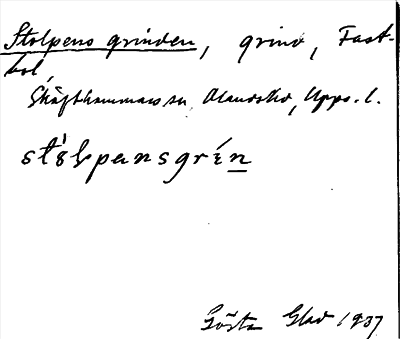 Stolpens grinden, grind, Fast-
bol,
Skäfthammars sn, Olands hd, Upps. l.
stǫ́lpansgrín
Gösta Glad 1937